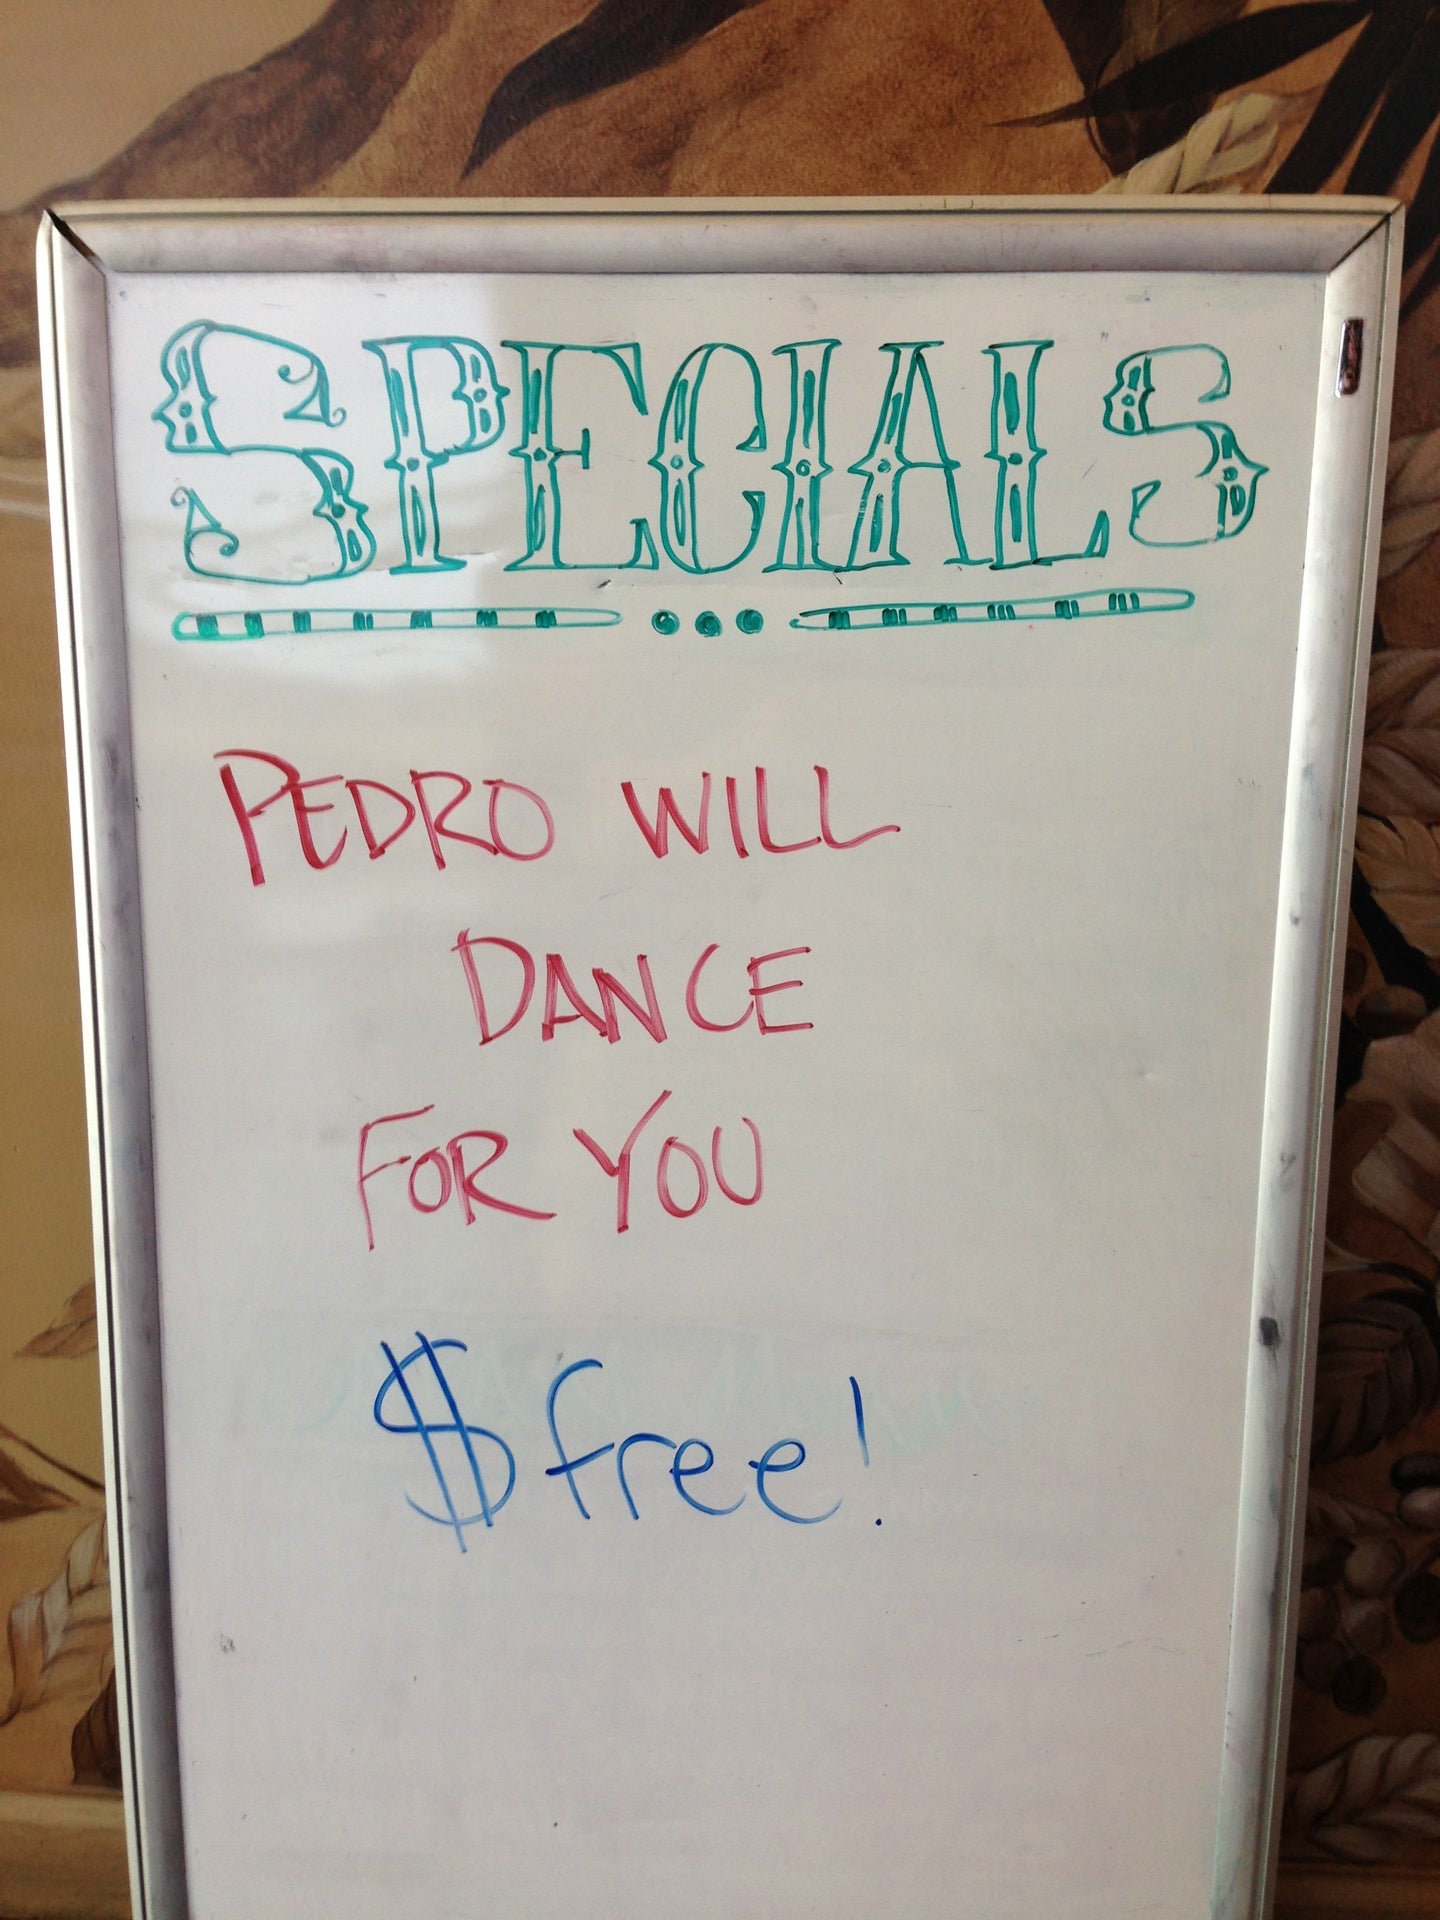 SPECIALS
PEDRO WILL
DANCE
FOR YOU
$ free!